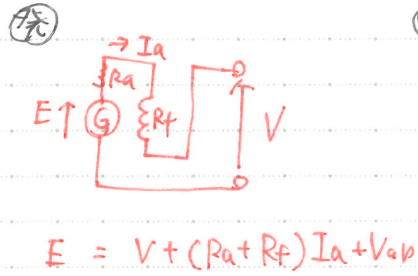 → Ia
Ra
E↑ G Rf V
E = V+(Ra+Rf)Ia+Vab